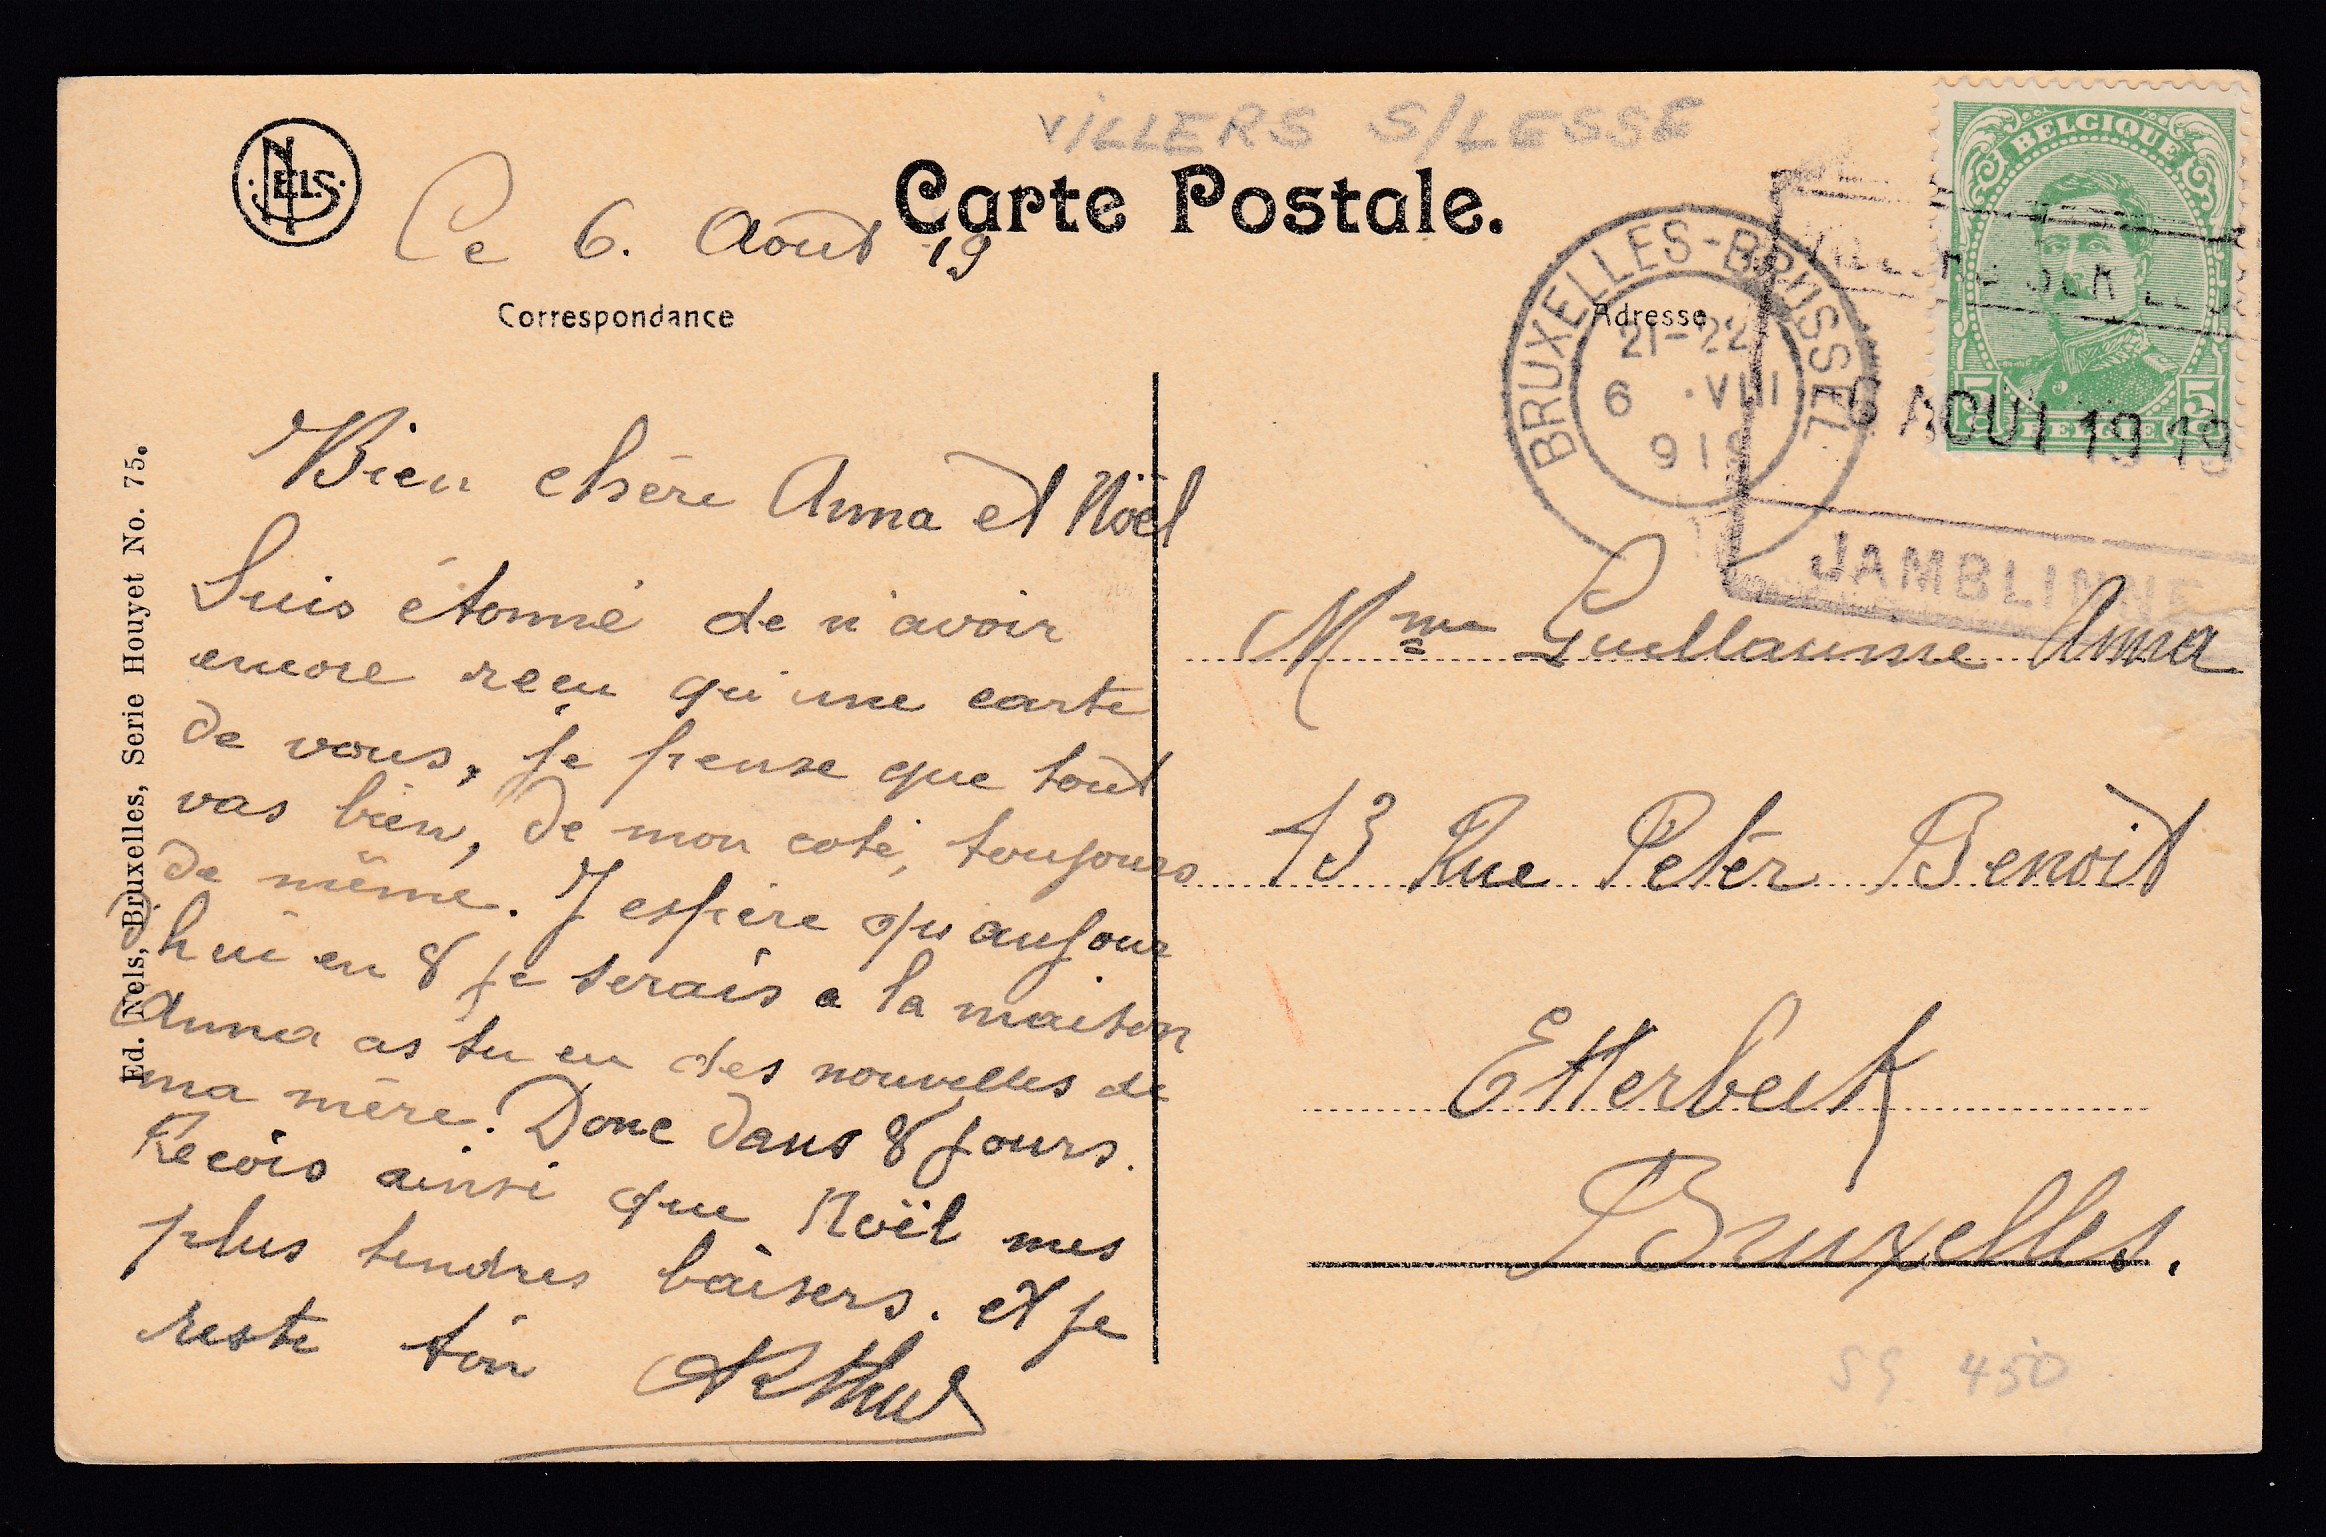 VILLERS S/LESSE
NELS
Carte Postale.
Ce 6. Août 19
Correspondance
Adresse
BELGIQUE
5 5
BELGIE
BRUXELLES-BRUSSEL
21-22
6 .VIII
191
6 AOUT 1919
JAMBLINNE
Bien chère Anna et Noël
Suis étonné de n'avoir
encore reçu qu'une carte
de vous, je pense que tout
vas bien, de mon coté, toujours
de même. J espère qu aujour
d hui en 8 je serais a la maison
Anna as tu eu des nouvelles de
ma mère. Donc dans 8 jours.
Recois ainsi que Noël mes
plus tendres baisers. et je
reste ton Arthur
Mme Guillaume Anna
13 Rue Peter Benoit
Etterbeek
Bruxelles.
Ed. Nels, Bruxelles, Serie Houyet No. 75.
450